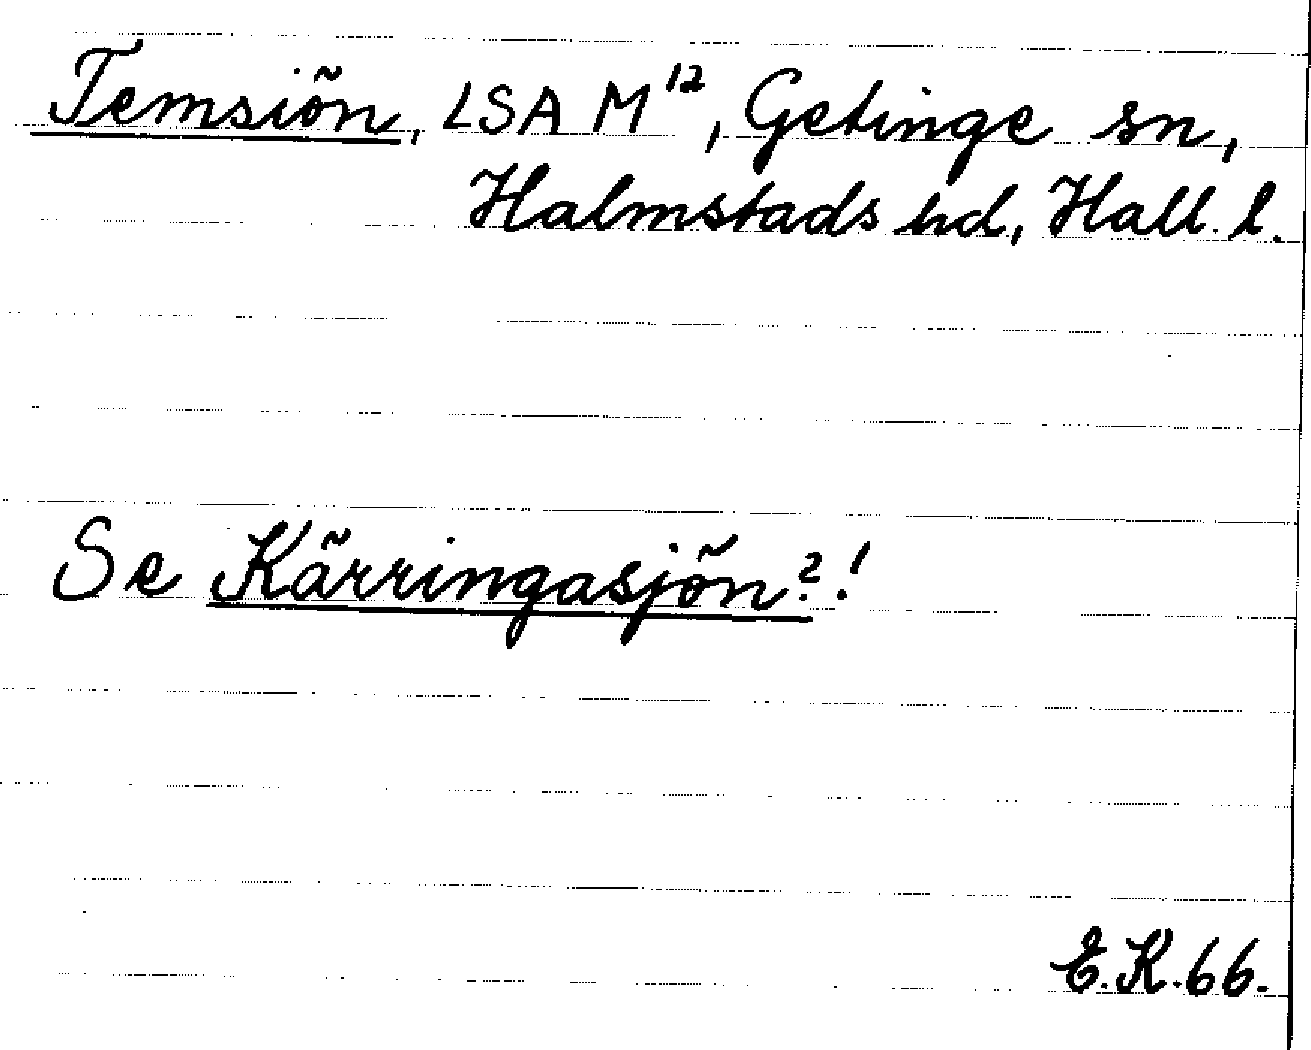 Temsiön, LSA M¹², Getinge sn,
Halmstads hd, Hall. l.
Se Kärringasjön?!
E.K. 66.